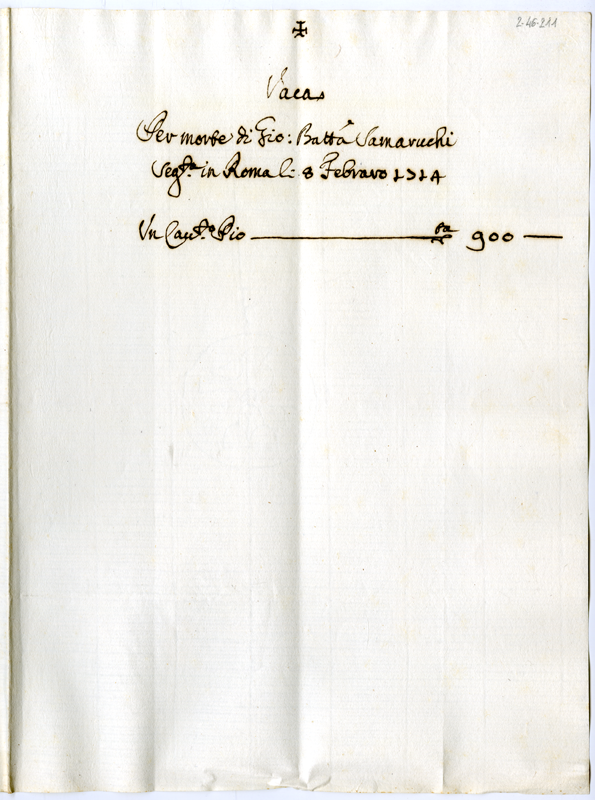 2.46.211
✠
Vaca
Per morte di Gio: Batta Samaruchi
Seg.ta in Roma li 8 Febraro 1714
Un Cav.to Pio ——— 900 —